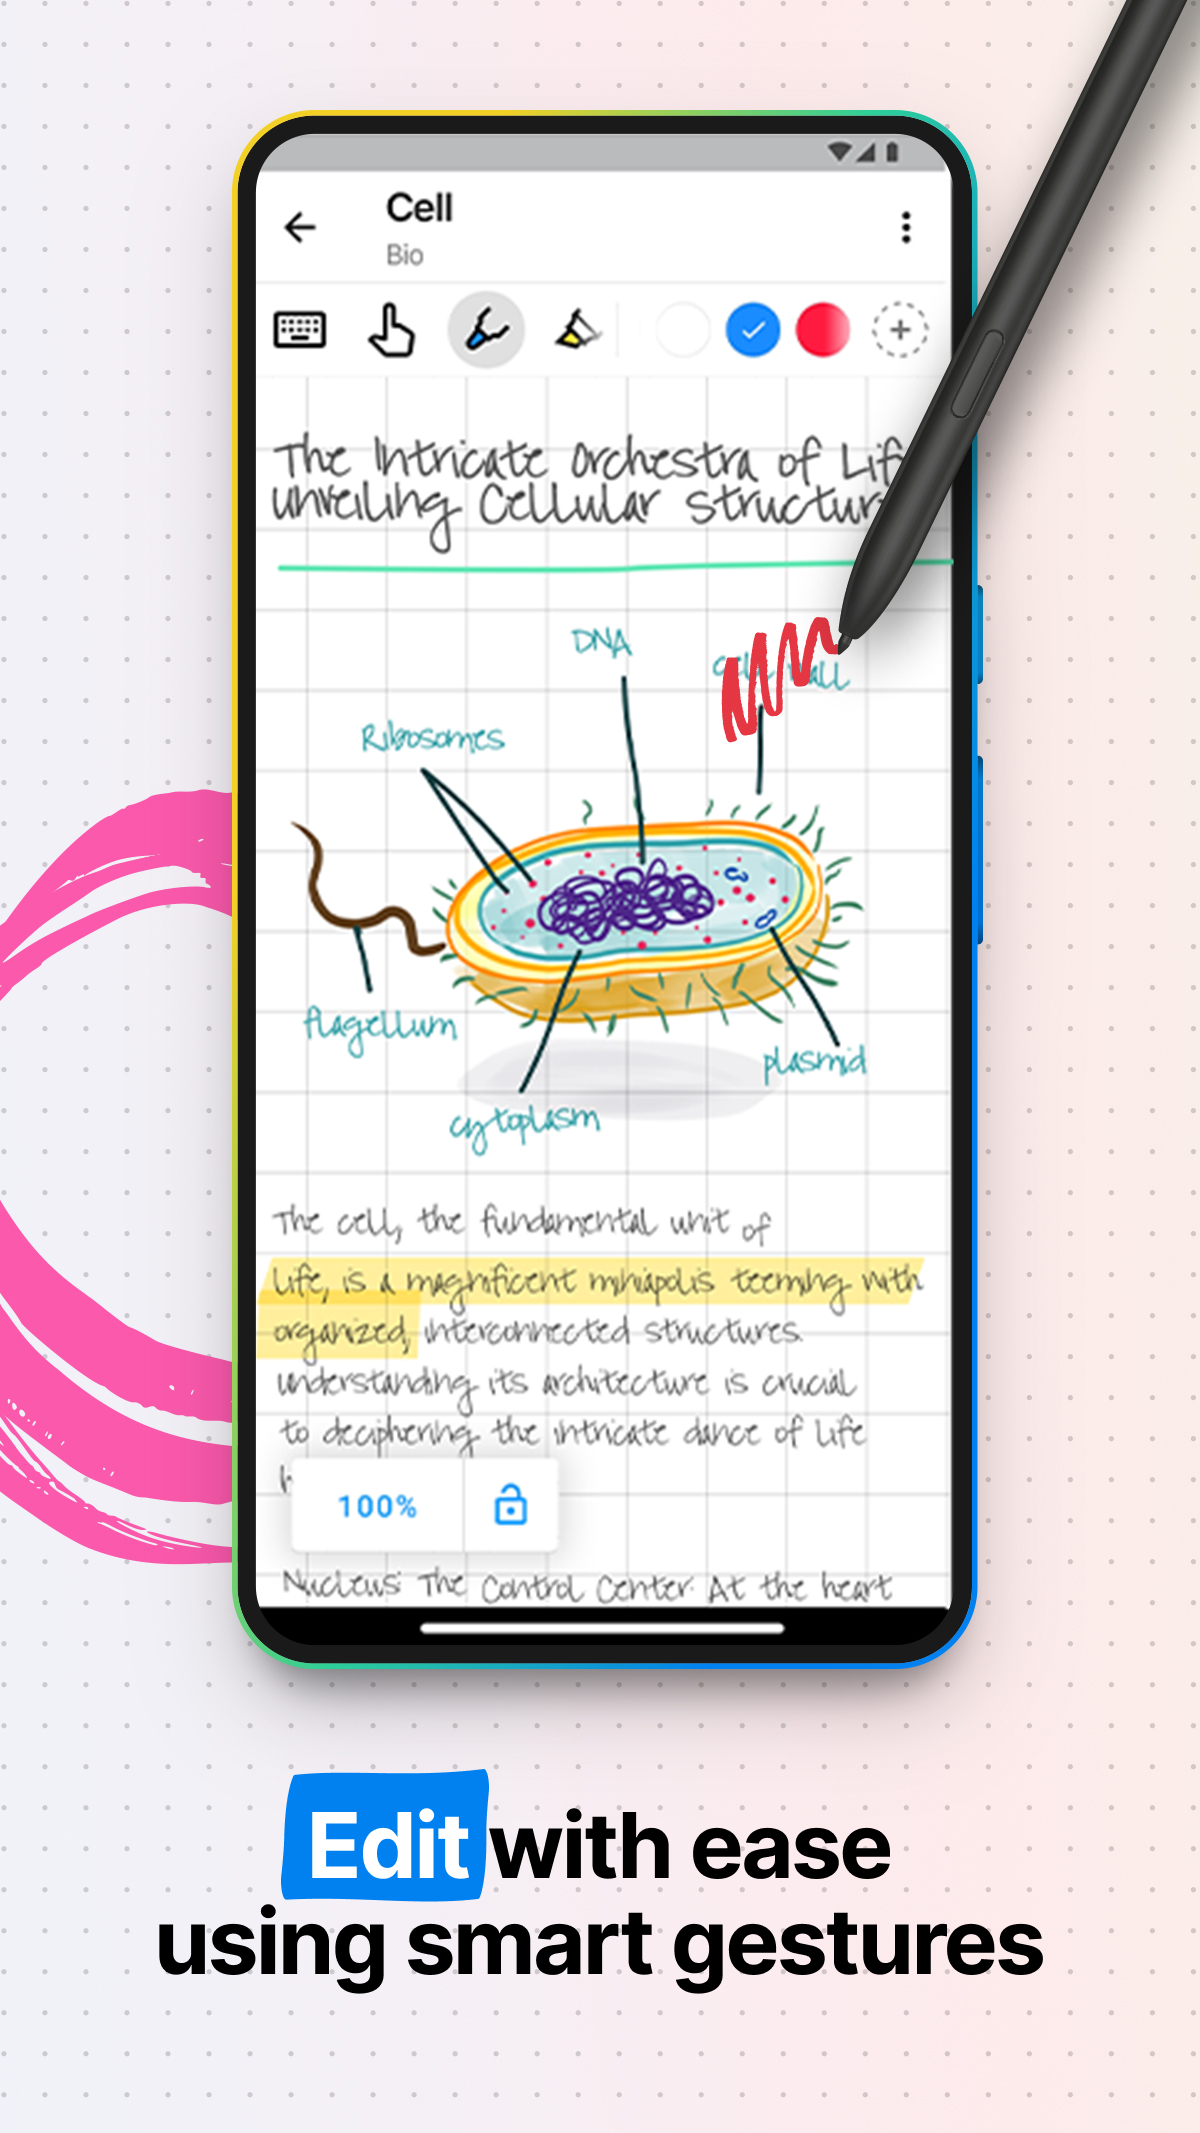 Cell
Bio
The Intricate Orchestra of Lif
unveiling Cellular structur
DNA
Cell wall
Ribosomes
flagellum
plasmid
cytoplasm
The cell, the fundamental unit of
life, is a magnificent mihiapolis teeming with
organized, interconnected structures.
understanding its architecture is crucial
to deciphering the intricate dance of life
100%
Nucleus: The Control Center: At the heart
Edit with ease
using smart gestures